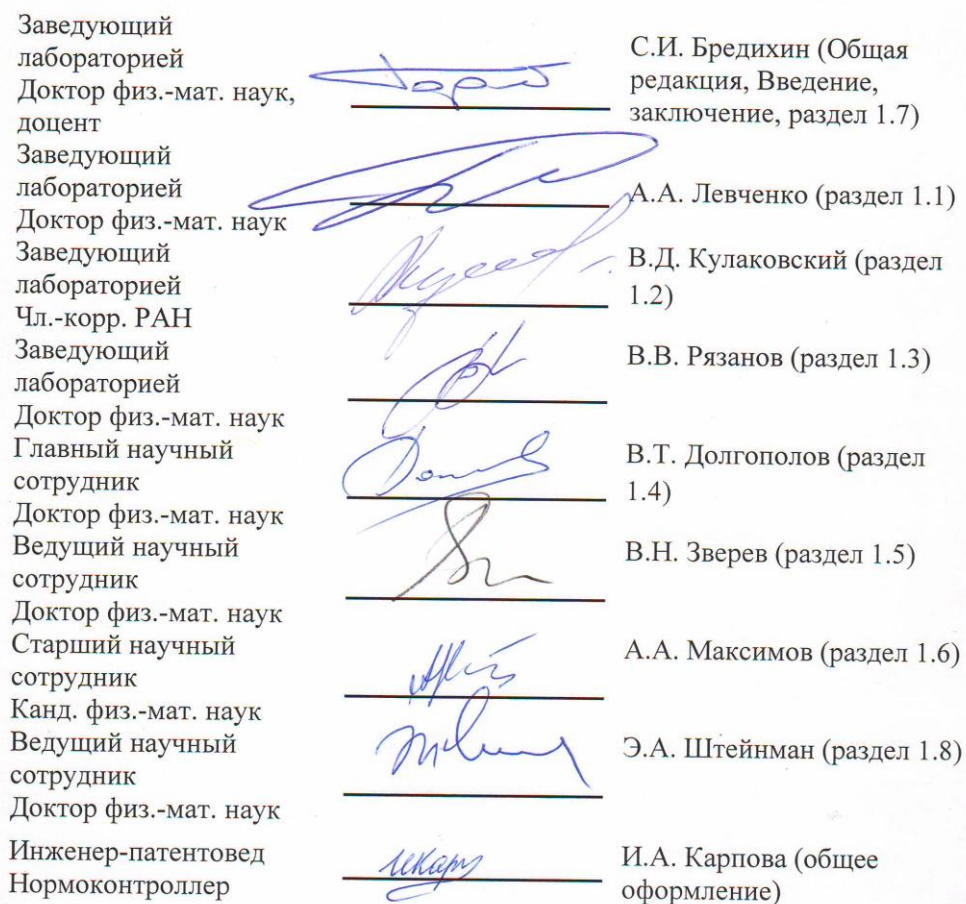 Заведующий
лабораторией
Доктор физ.-мат. наук,
доцент
С.И. Бредихин (Общая
редакция, Введение,
заключение, раздел 1.7)
Заведующий
лабораторией
Доктор физ.-мат. наук
А.А. Левченко (раздел 1.1)
Заведующий
лабораторией
Чл.-корр. РАН
В.Д. Кулаковский (раздел
1.2)
Заведующий
лабораторией
Доктор физ.-мат. наук
В.В. Рязанов (раздел 1.3)
Главный научный
сотрудник
Доктор физ.-мат. наук
В.Т. Долгополов (раздел
1.4)
Ведущий научный
сотрудник
Доктор физ.-мат. наук
В.Н. Зверев (раздел 1.5)
Старший научный
сотрудник
Канд. физ.-мат. наук
А.А. Максимов (раздел 1.6)
Ведущий научный
сотрудник
Доктор физ.-мат. наук
Э.А. Штейнман (раздел 1.8)
Инженер-патентовед
Нормоконтроллер
И.А. Карпова (общее
оформление)